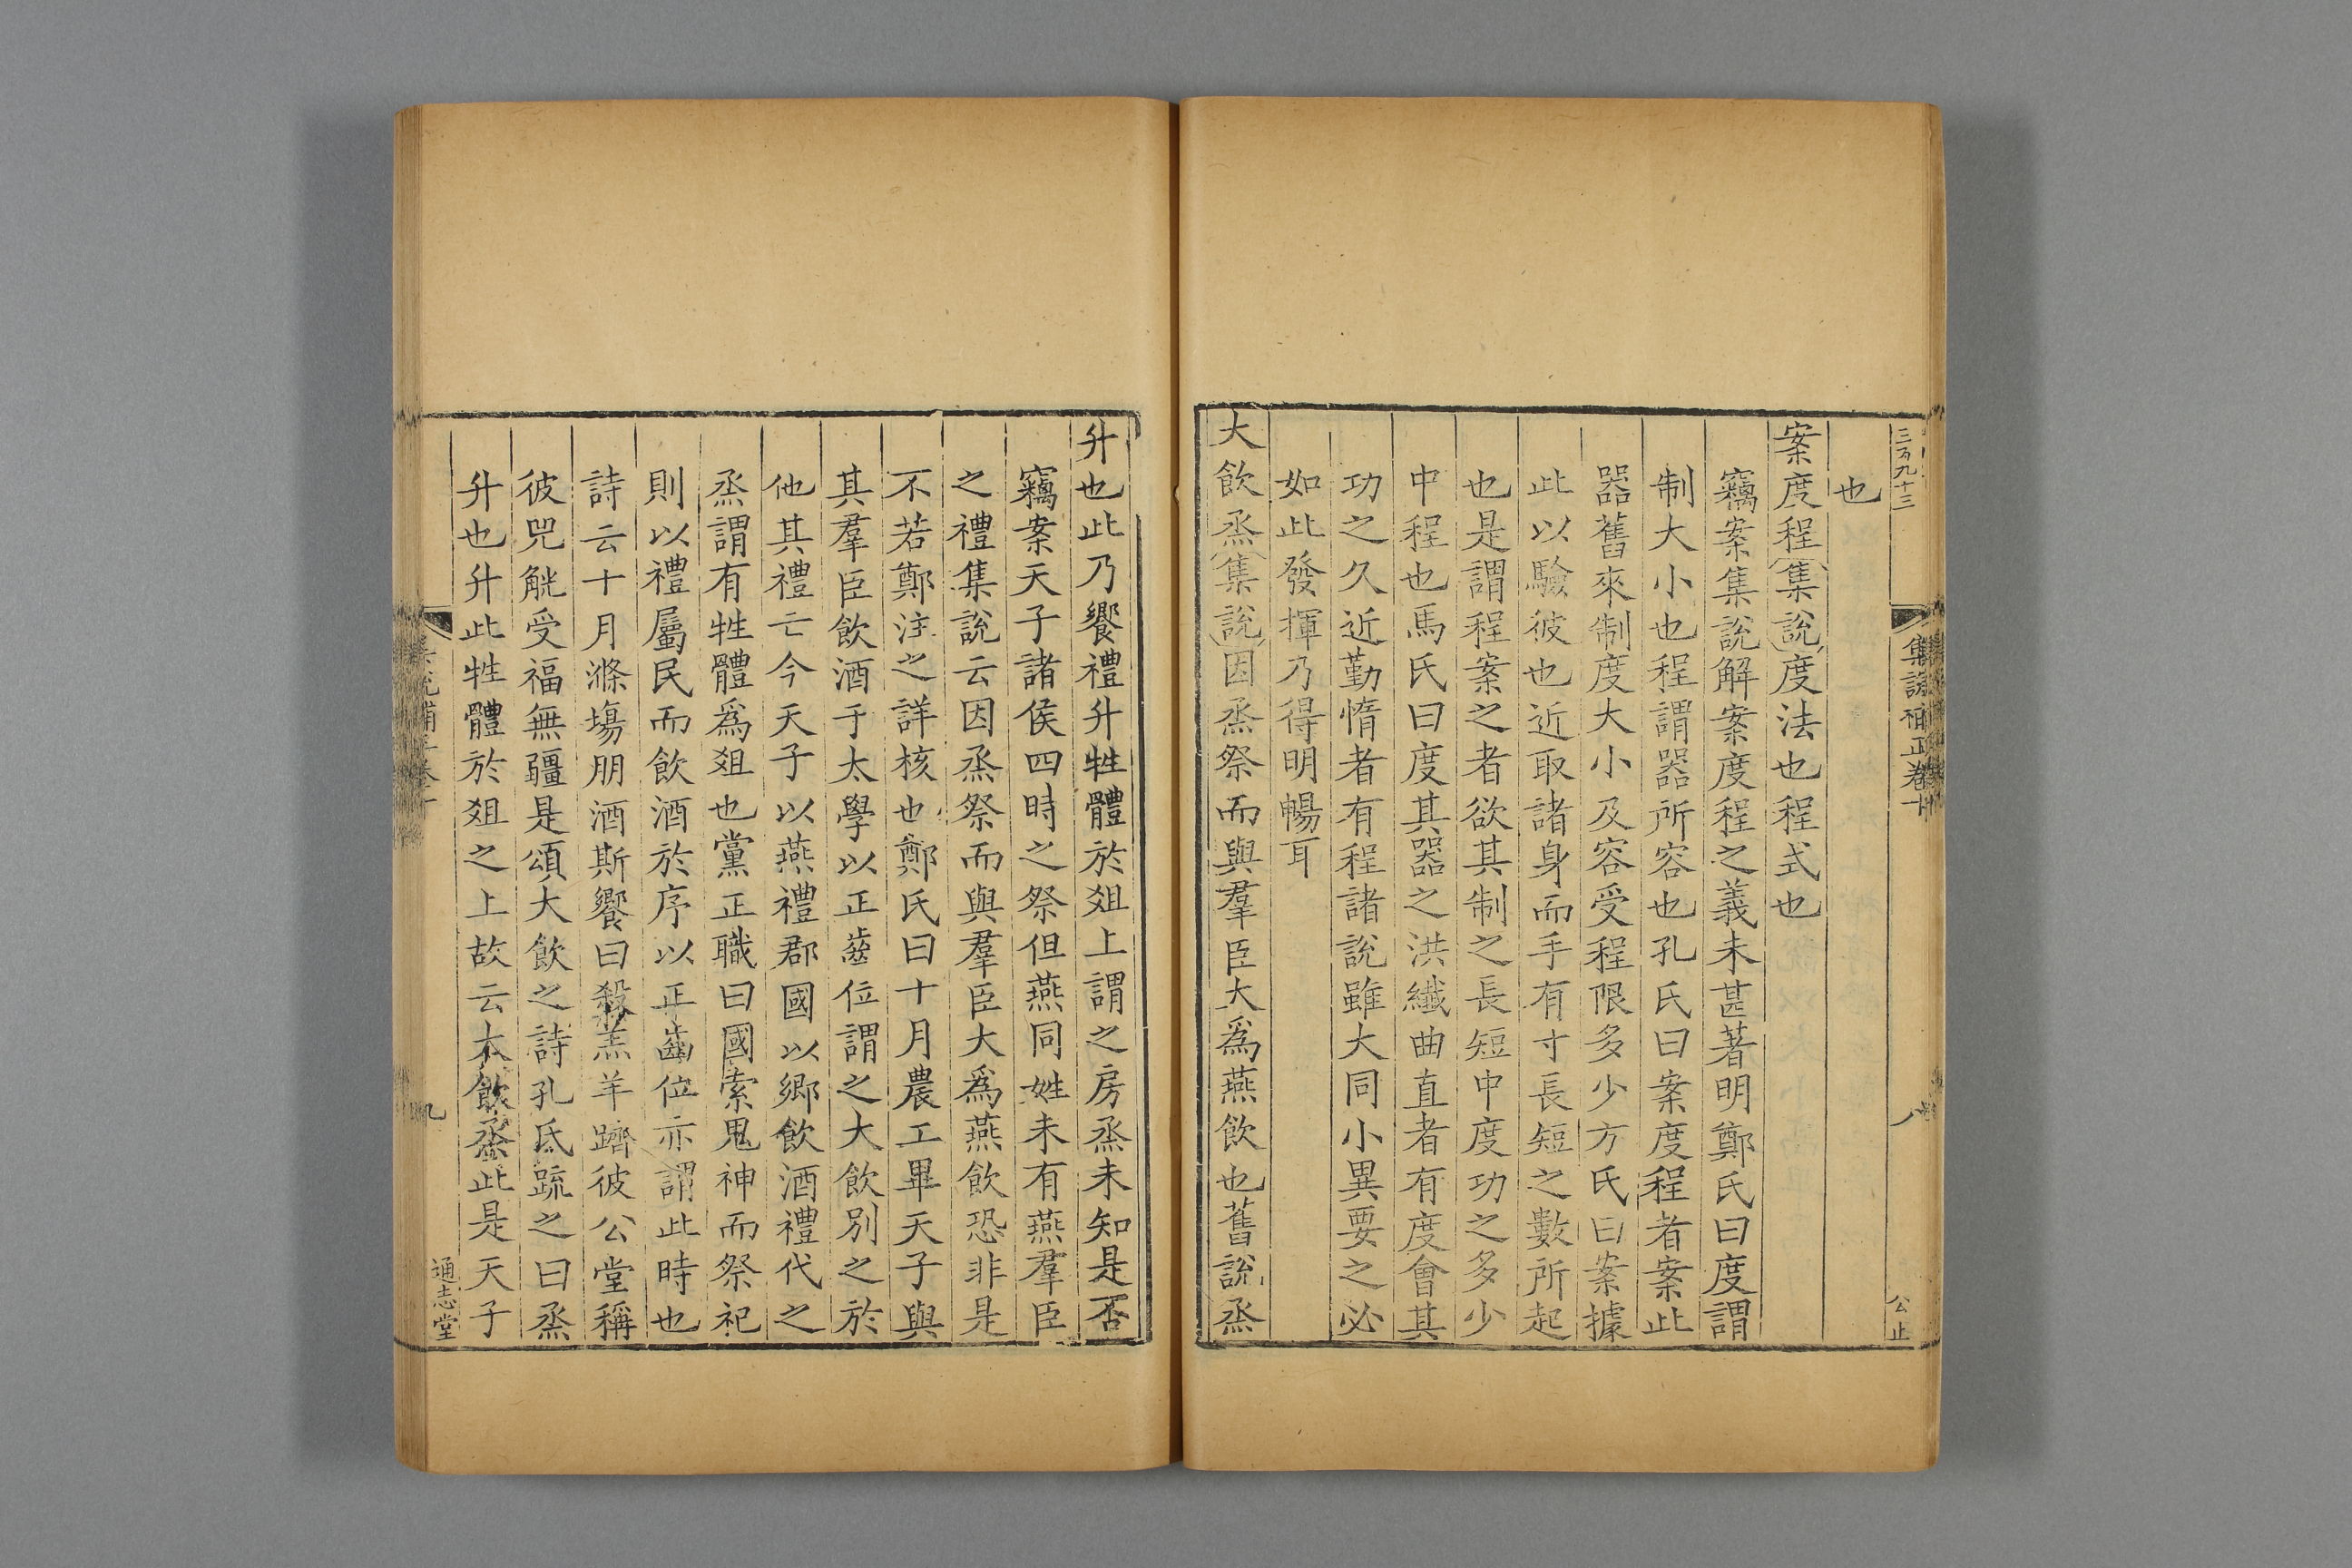 三百九十三
集說補正卷十
八
公止
也
案度程集說度法也程式也
竊案集說解案度程之義未甚著明鄭氏曰度謂
制大小也程謂器所容也孔氏曰案度程者案此
器舊來制度大小及容受程限多少方氏曰案據
此以驗彼也近取諸身而手有寸長短之數所起
也是謂程案之者欲其制之長短中度功之多少
中程也馬氏曰度其器之洪纖曲直者有度會其
功之久近勤惰者有程諸說雖大同小異要之必
如此發揮乃得明暢耳
大飲烝集說因烝祭而與羣臣大爲燕飲也舊說烝
升也此乃饗禮升牲體於俎上謂之房烝未知是否
竊案天子諸侯四時之祭但燕同姓未有燕羣臣
之禮集說云因烝祭而與羣臣大爲燕飲恐非是
不若鄭注之詳核也鄭氏曰十月農工畢天子與
其羣臣飲酒于太學以正齒位謂之大飲別之於
他其禮亡今天子以燕禮郡國以鄉飲酒禮代之
烝謂有牲體爲俎也黨正職曰國索鬼神而祭祀
則以禮屬民而飲酒於序以正齒位亦謂此時也
詩云十月滌場朋酒斯饗曰殺羔羊躋彼公堂稱
彼兕觥受福無疆是頌大飲之詩孔氏疏之曰烝
升也升此牲體於俎之上故云大飲烝此是天子
九
通志堂